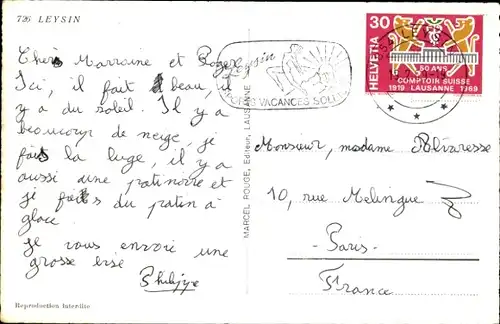 726 LEYSIN
Chers Marraine et Roger
Ici, il fait beau il
y a du soleil. Il y a
beaucoup de neige, je
fais la luge, il y a
aussi une patinoire et
je fais du patin à
glace.
je vous envoie une
grosse bise
Philippe
Reproduction interdite
MARCEL ROUGE, Editeur, LAUSANNE
Leysin
SPORTS VACANCES SOLEIL
LEYSIN
HELVETIA
30
50 ANS
COMPTOIR SUISSE
1919 LAUSANNE 1969
Monsieur, madame
10, rue Melingue
Paris
France